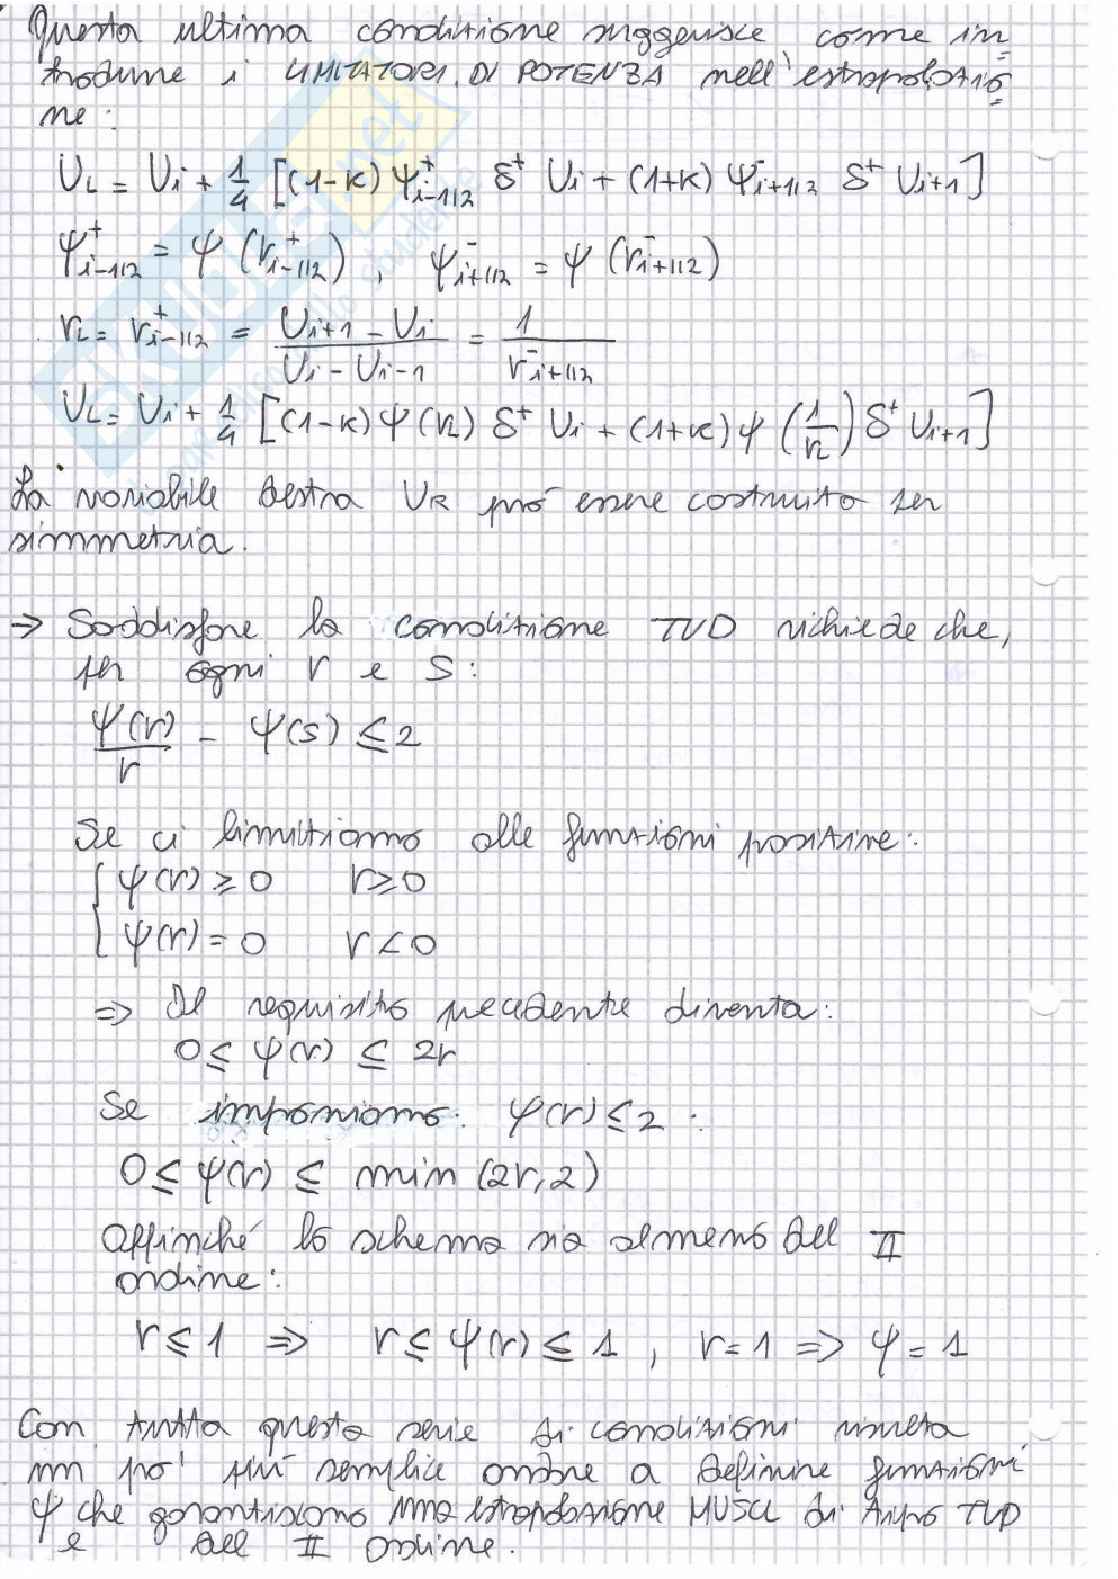 Questa ultima condizione suggerisce come in
trodurre i LIMITATORI DI POTENZA nell'estrapolazio
ne:
U_L = U_i + 1/4 [(1-κ) ψ⁺_{i-1/2} δ⁺ U_i + (1+κ) ψ⁻_{i+1/2} δ⁺ U_{i+1}]
ψ⁺_{i-1/2} = ψ (r⁺_{i-1/2}) , ψ⁻_{i+1/2} = ψ (r⁻_{i+1/2})
r_L = r⁺_{i-1/2} = (U_{i+1} - U_i)/(U_i - U_{i-1}) = 1/r⁻_{i+1/2}
U_L = U_i + 1/4 [(1-κ) ψ(r_L) δ⁺ U_i + (1+κ) ψ (1/r_L) δ⁺ U_{i+1}]
La variabile destra U_R può essere costruita per
simmetria.
→ Soddisfare la condizione TVD richiede che,
per ogni r e s:
ψ(r)/r - ψ(s) ≤ 2
Se ci limitiamo alle funzioni positive:
{ ψ(r) ≥ 0 r ≥ 0
ψ(r) = 0 r < 0
⇒ Il requisito precedente diventa:
0 ≤ ψ(r) ≤ 2r
Se imponiamo: ψ(r) ≤ 2 :
0 ≤ ψ(r) ≤ min (2r, 2)
Affinché lo schema sia almeno del II
ordine:
r ≤ 1 ⇒ r ≤ ψ(r) ≤ 1 , r = 1 ⇒ ψ = 1
Con tutta questa serie di condizioni risulta
un po' più semplice andare a definire funzioni
ψ che garantiscono una estrapolazione MUSCL di tipo TVD
e del II ordine.